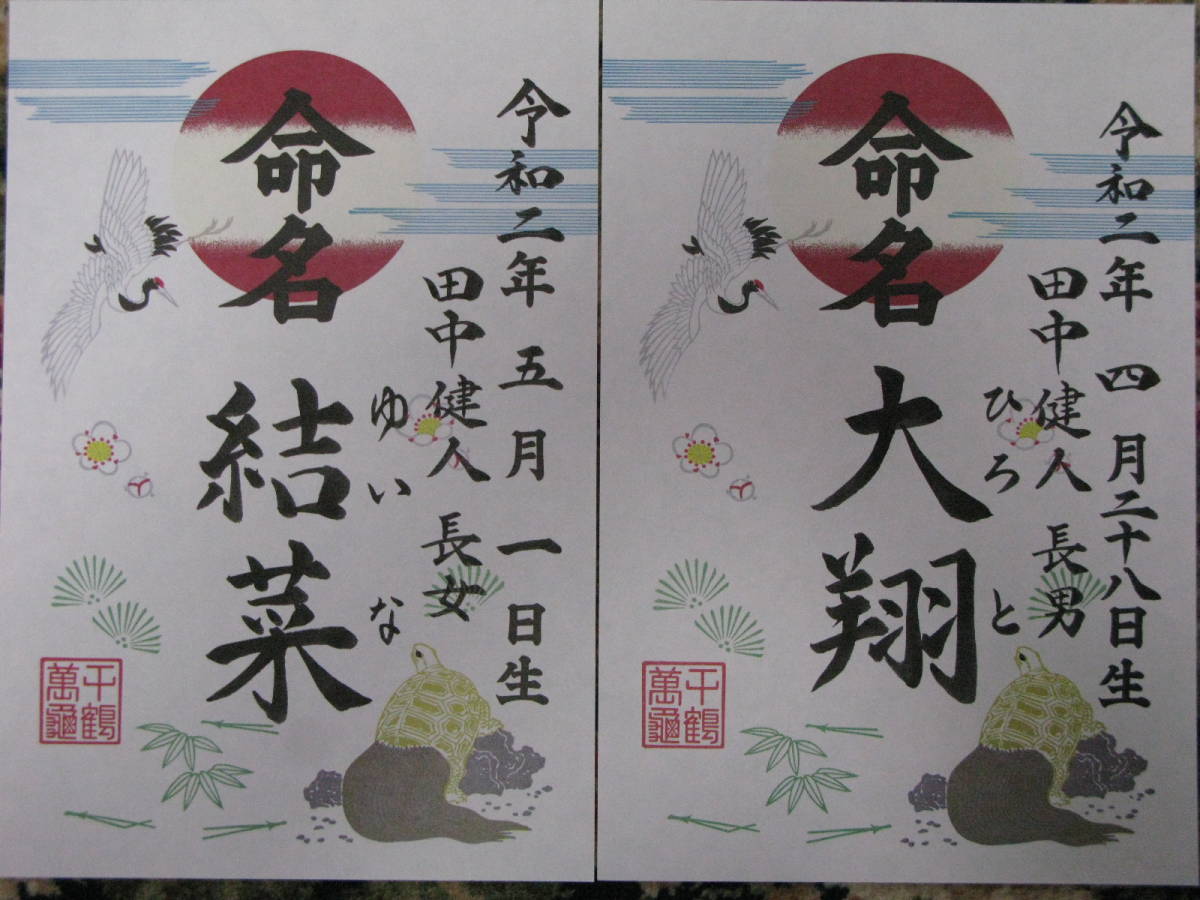 令和二年 五月 一日生
田中健人 長女
ゆいな
命名 結菜
千鶴
萬龜
令和二年 四月二十八日生
田中健人 長男
ひろと
命名 大翔
千鶴
萬龜